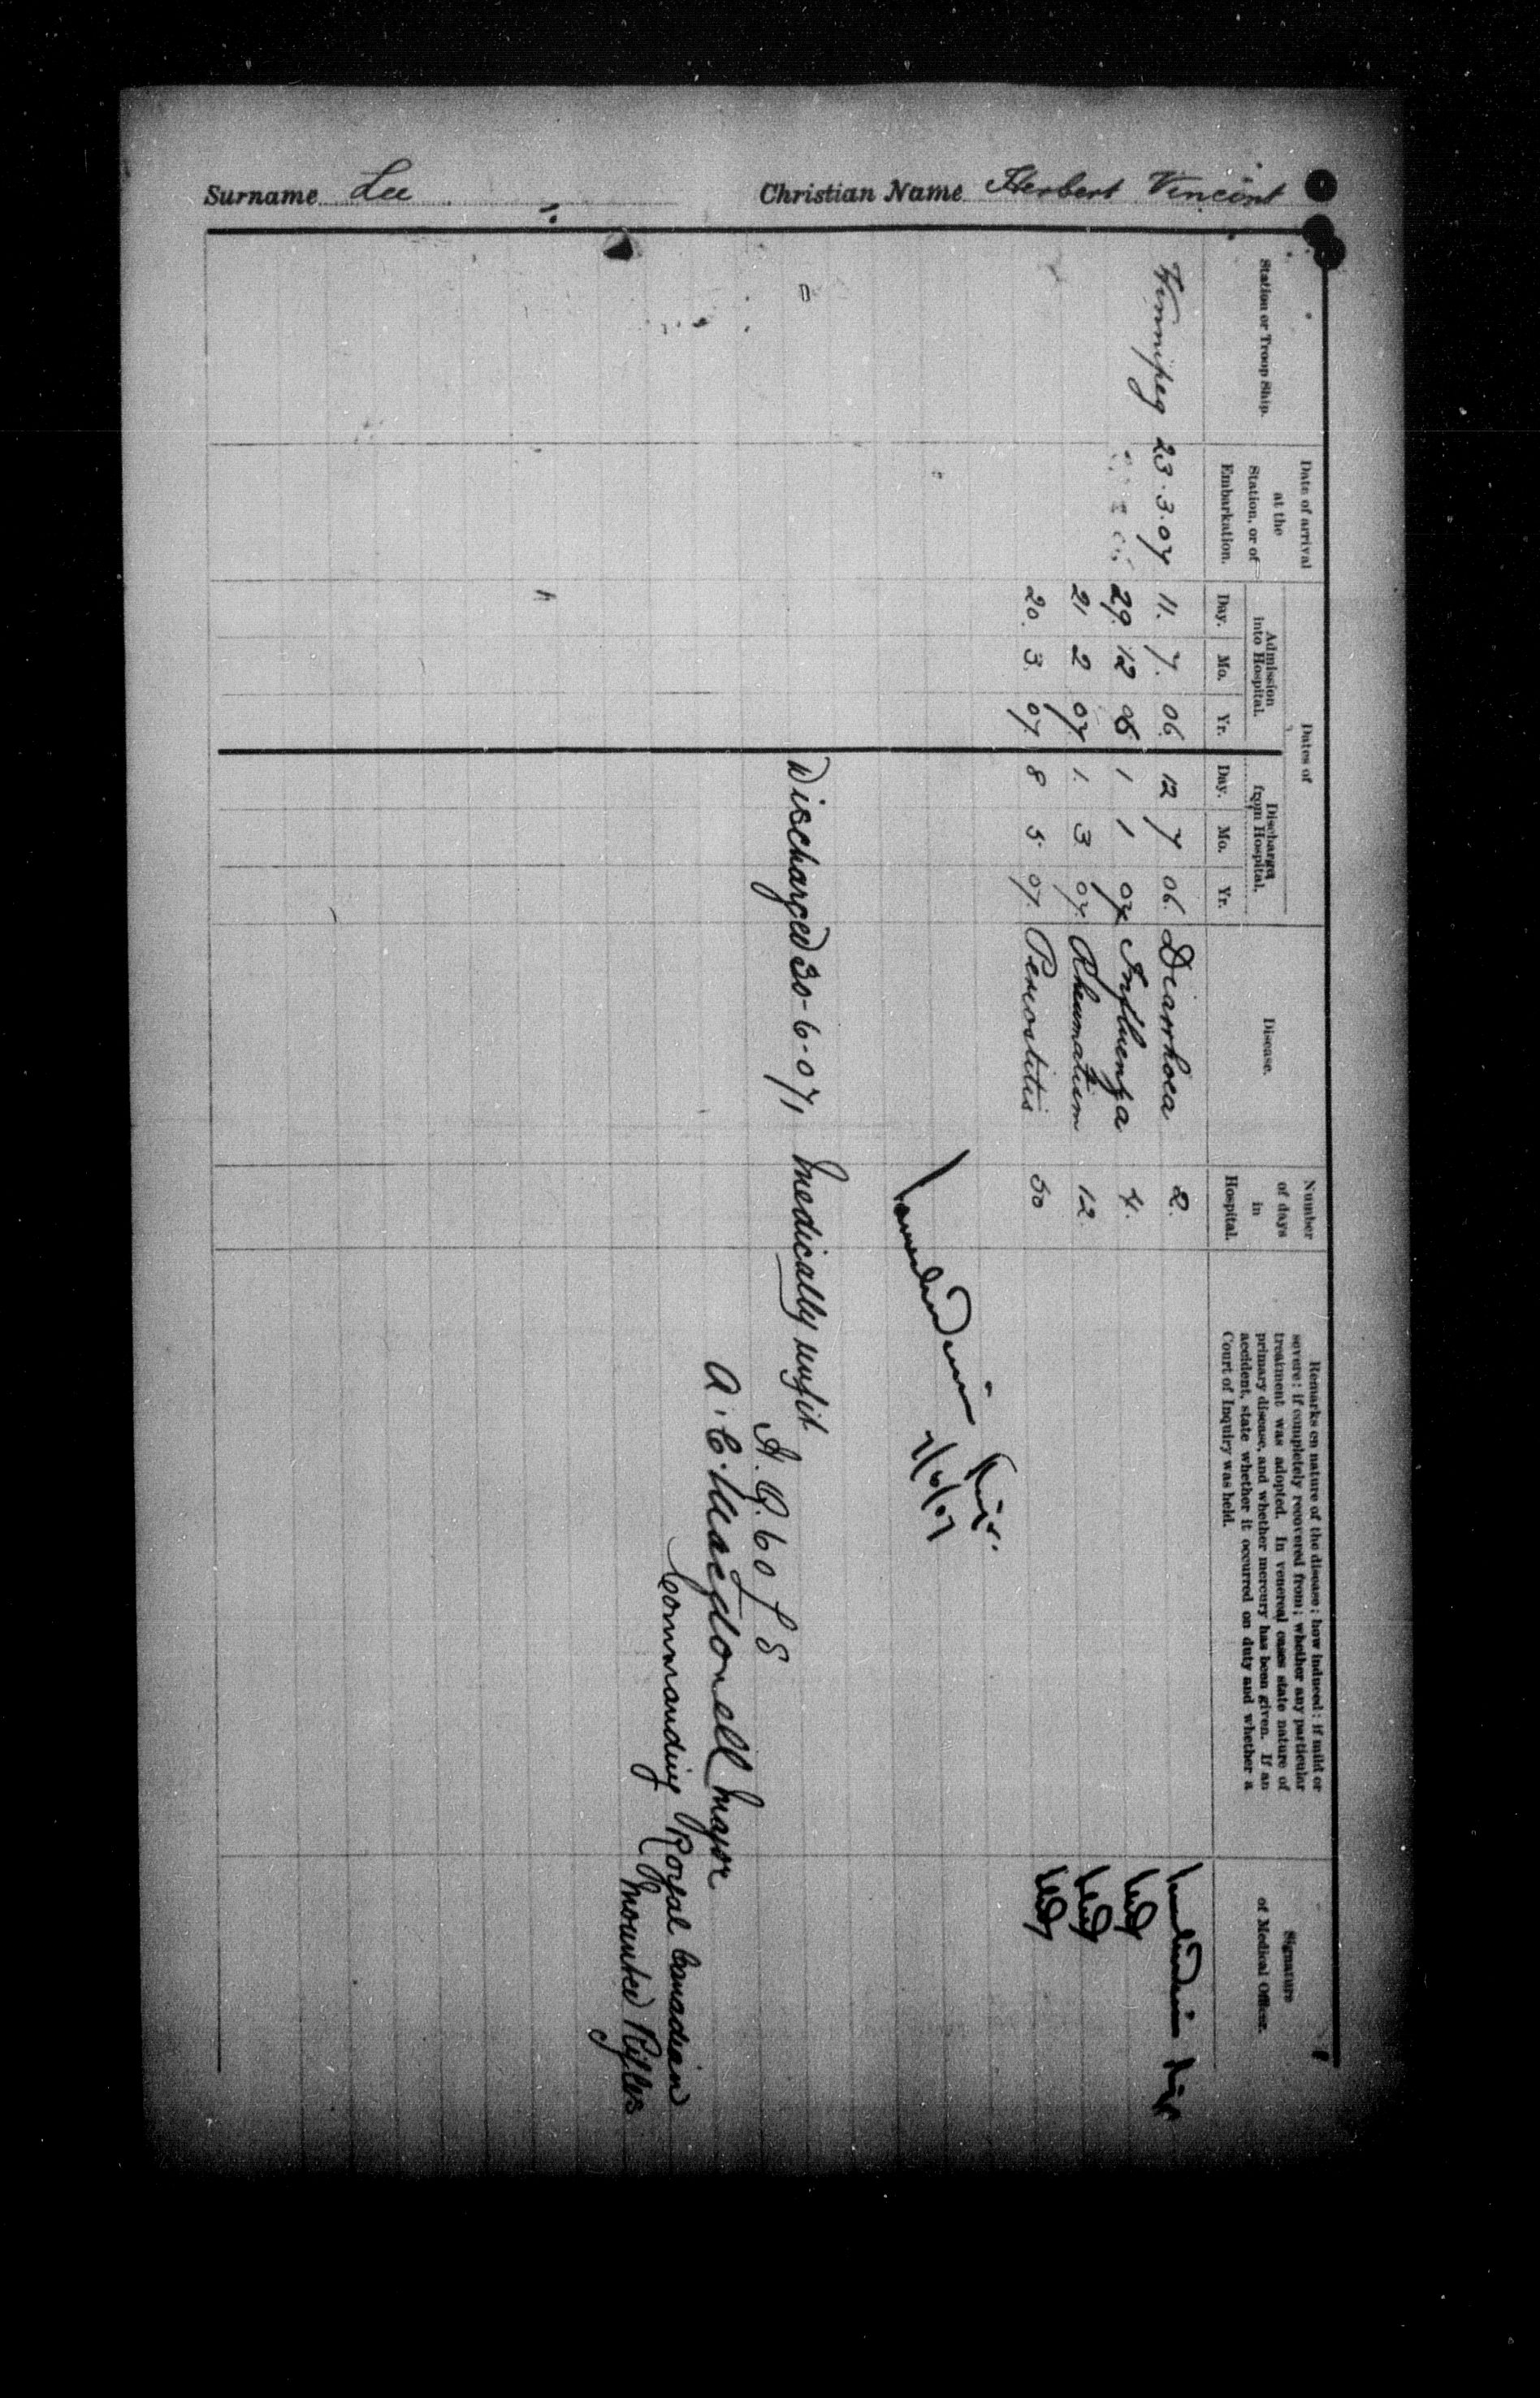 Surname Lee Christian Name Herbert Vincent
Station or Troop Ship.
Date of arrival
at the
Station, or of
Embarkation.
Dates of
Admission
into Hospital.
Discharge
from Hospital.
Day. Mo. Yr. Day. Mo. Yr.
Disease.
Number
of days
in
Hospital.
Remarks on nature of the disease; how induced; if mild or
severe; if completely recovered from; whether any particular
treatment was adopted. In venereal cases state nature of
primary disease, and whether mercury has been given. If an
accident, state whether it occurred on duty and whether a
Court of Inquiry was held.
Signature
of Medical Officer.
Winnipeg 23.3.07 11. 7. 06. 12 7 06. Diarrhoea 2.
29. 12 06 1 1 07 Influenza 4.
21 2 07 1. 3 07. Rheumatism 12
20. 3. 07 8 5 07. Periostitis 50
7/6/07
Discharged 30-6-07, Medically unfit
A.C. Macdonell Major
Commanding Royal Canadian
Mounted Rifles